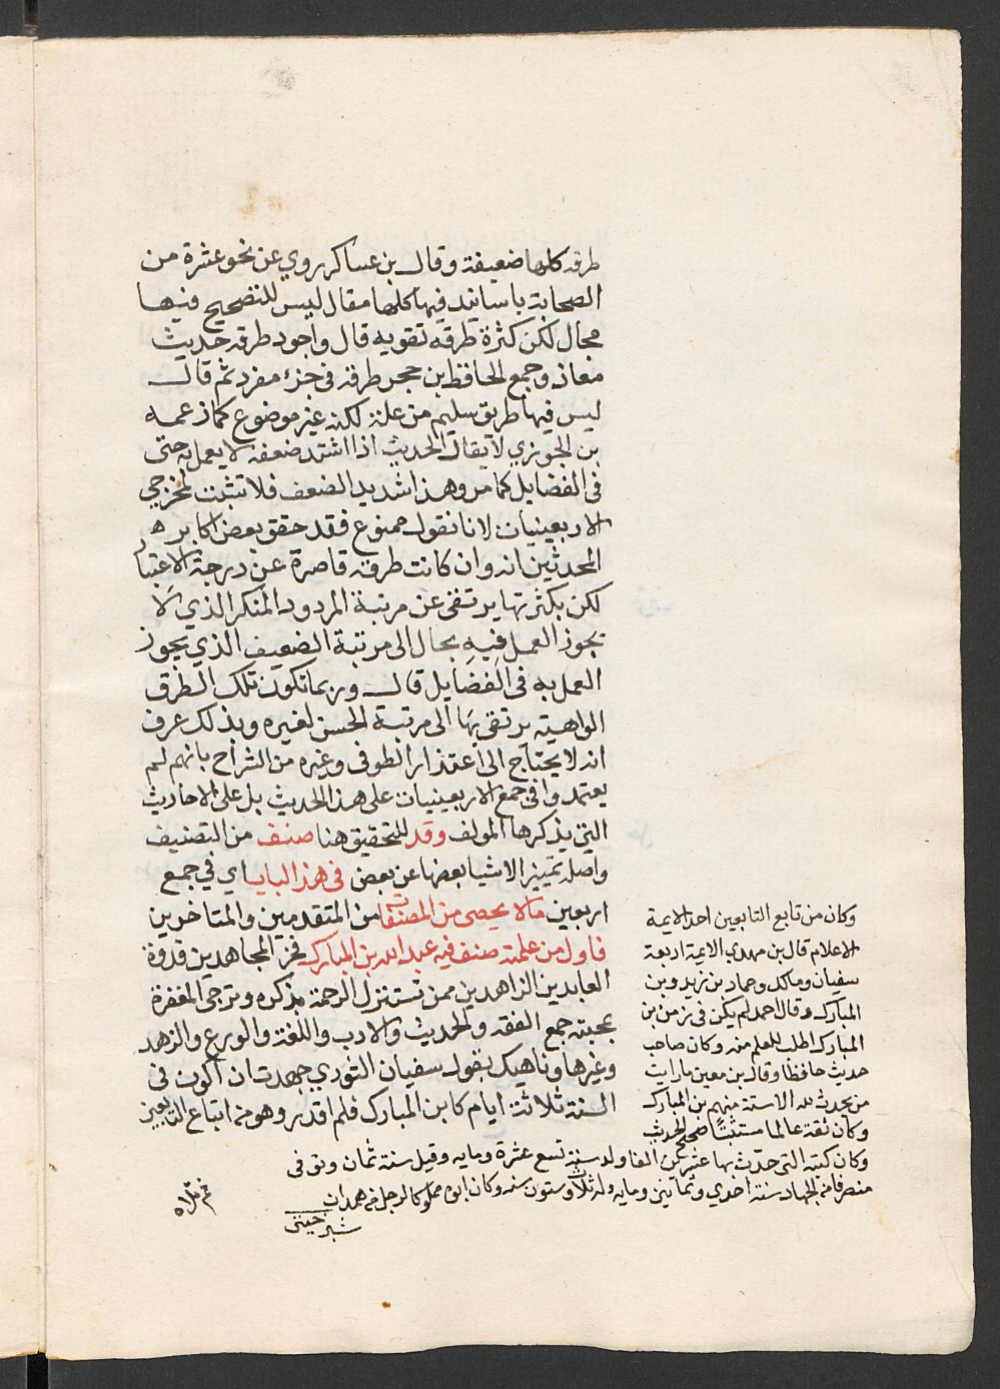 طرقه كلها ضعيفة وقال بن عساكر روي عن نحو عشرة من
الصحابة باسانيد فيها كلها مقال ليس للتصحيح فيها
مجال لكن كثرة طرقه تقويه قال واجود طرقه حديث
معاذ وجمع الحافظ بن حجر طرقه في جزء مفرد ثم قال
ليس فيها طريق سليم من علة لكنه غير موضوع كما زعمه
بن الجوزي لا يقال الحديث اذا اشتد ضعفه لا يعمل به حتى
في الفضايل كما مر وهذا شديد الضعف فلا تثبت لمخرجي
الاربعينيات لانا نقول ممنوع فقد حقق بعض اكابر
المحدثين انه وان كانت طرقه قاصرة عن درجة الاعتبار
لكن بكثرتها يرتقى عن مرتبة المردود المنكر الذي لا
يجوز العمل فيه بحال الى مرتبة الضعيف الذي يجوز
العمل به في الفضايل قال وربما تكون تلك الطرق
الواهية يرتقي بها الى مرتبة الحسن لغيره وبذلك عرف
انه لا يحتاج الى اعتذار الطوفى وغيره من الشراح بانهم لم
يعتمدوا في جمع الاربعينيات على هذا الحديث بل على الاحاديث
التي يذكرها المولف وقد للتحقيق هنا صنف من التصنيف
واصله تمييز الاشيا بعضها عن بعض في هذا الباب اي في جمع
اربعين مالا يحصى من المصنفات من المتقدمين والمتاخرين
فاول من علمته صنف فيه عبد الله بن المبارك فخر المجاهدين قدوة
العابدين الزاهدين ممن تستنزل الرحمة بذكره وترجى المغفرة
بمحبته جمع الفقه والحديث والادب واللغة والورع والزهد
وغيرها وناهيك بقول سفيان الثوري جهدت ان اكون في
السنة ثلاثة ايام كابن المبارك فلم اقدر وهو من اتباع التابعين
وكان من تابع التابعين احد الايمة
الاعلام قال بن مهدي الايمة اربعة
سفيان ومالك وحماد بن زيد وبن
المبارك وقال احمد لم يكن في زمن بن
المبارك اطلب للعلم منه وكان صاحب
حديث حافظا وقال بن معين ما رايت
من يحدث لله الا ستة منهم بن المبارك
وكان ثقة عالما متثبتا صحيح الحديث
وكان كتبه التي حدث بها عشرين الفا ولد سنة تسع عشرة ومايه وقيل سنة ثمان وتوفى
منصرفا من الجهاد سنة احدي وثمانين ومايه وله ثلاث وستون سنه وكان ابوه مملوكا لرجل من همدان
شبرخيتي